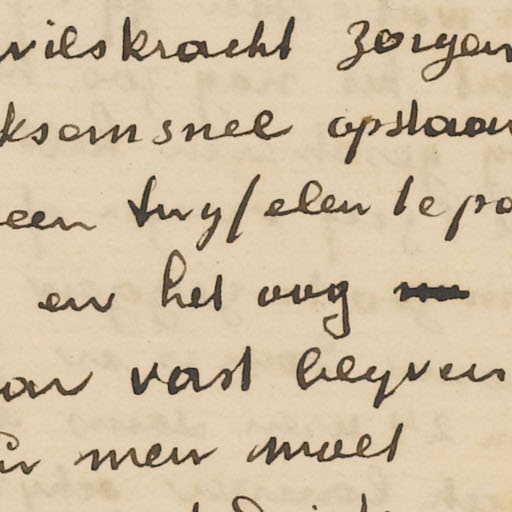 wilskracht zorgen
ksomsnel opstaan
een twyfelen te po
en het oog
an vast blyven
men moet